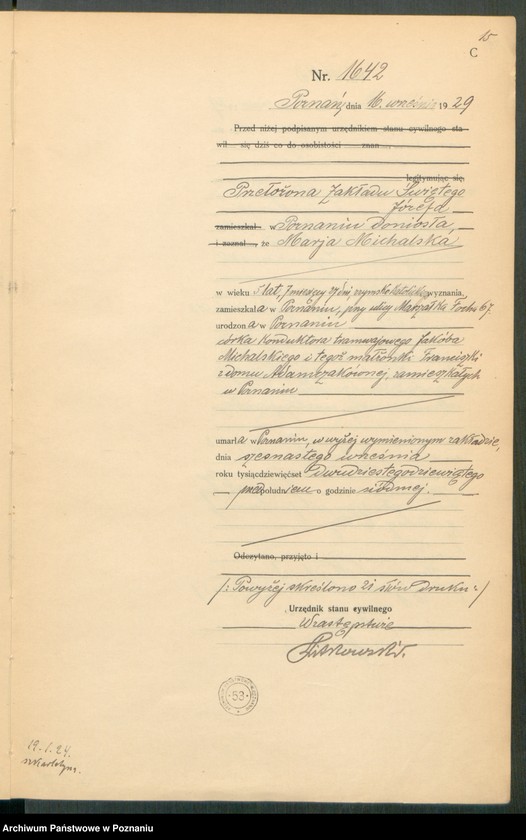 15
C
Nr. 1642
Poznań, dnia 16. września 1929
Przed niżej podpisanym urzędnikiem stanu cywilnego sta-
wił się dziś co do osobistości znan
legitymując się
Przełożona Zakładu Świętego
Józefa
zamieszkał w Poznaniu doniosła,
i zeznał, że Marja Michalska
w wieku 5 lat, 7 miesięcy 27 dni, rzymsko katolickiego wyznania,
zamieszkała w Poznaniu, przy ulicy Marszałka Focha 67
urodzona w Poznaniu
córka konduktora tramwajowego Jakóba
Michalskiego i tegoż małżonki Franciszki
z domu Adamczakównej, zamieszkałych
w Poznaniu
umarła w Poznaniu, w wyżej wymienionym zakładzie,
dnia szesnastego września
roku tysiącdziewięćset dwudziestego dziewiątego
przedpołudniem o godzinie siódmej.
Odczytano, przyjęto i
/: Powyżej skreślono 21 słów druku :/
Urzędnik stanu cywilnego
W zastępstwie
53
19.1.24.
Archiwum Państwowe w Poznaniu